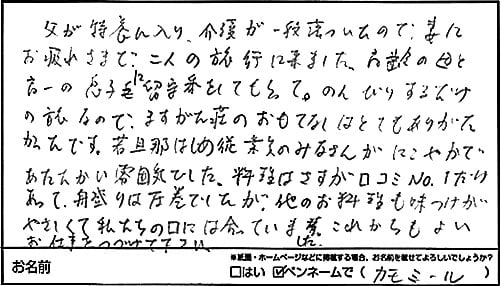 父が特養に入り、介護が一段落ついたので、妻に
お疲れさまで、二人の旅行に来ました。高齢の母と
高一の息子に留守番をしてもらって。のんびりするだけ
の旅なので、ますがた荘のおもてなしはとてもありがた
かったです。若旦那はじめ従業員のみなさんがにこやかで
あたたかい雰囲気でした。料理はさすが口コミNo.1だけ
あって、舟盛りは圧巻でしたが、他のお料理も味つけが
やさしくて私たちの口には合っていました。これからもよい
お仕事をつづけて下さい。
※紙面・ホームページなどに掲載する場合、お名前を載せてよろしいでしょうか?
お名前 □はい ☑ペンネームで（カモミール）